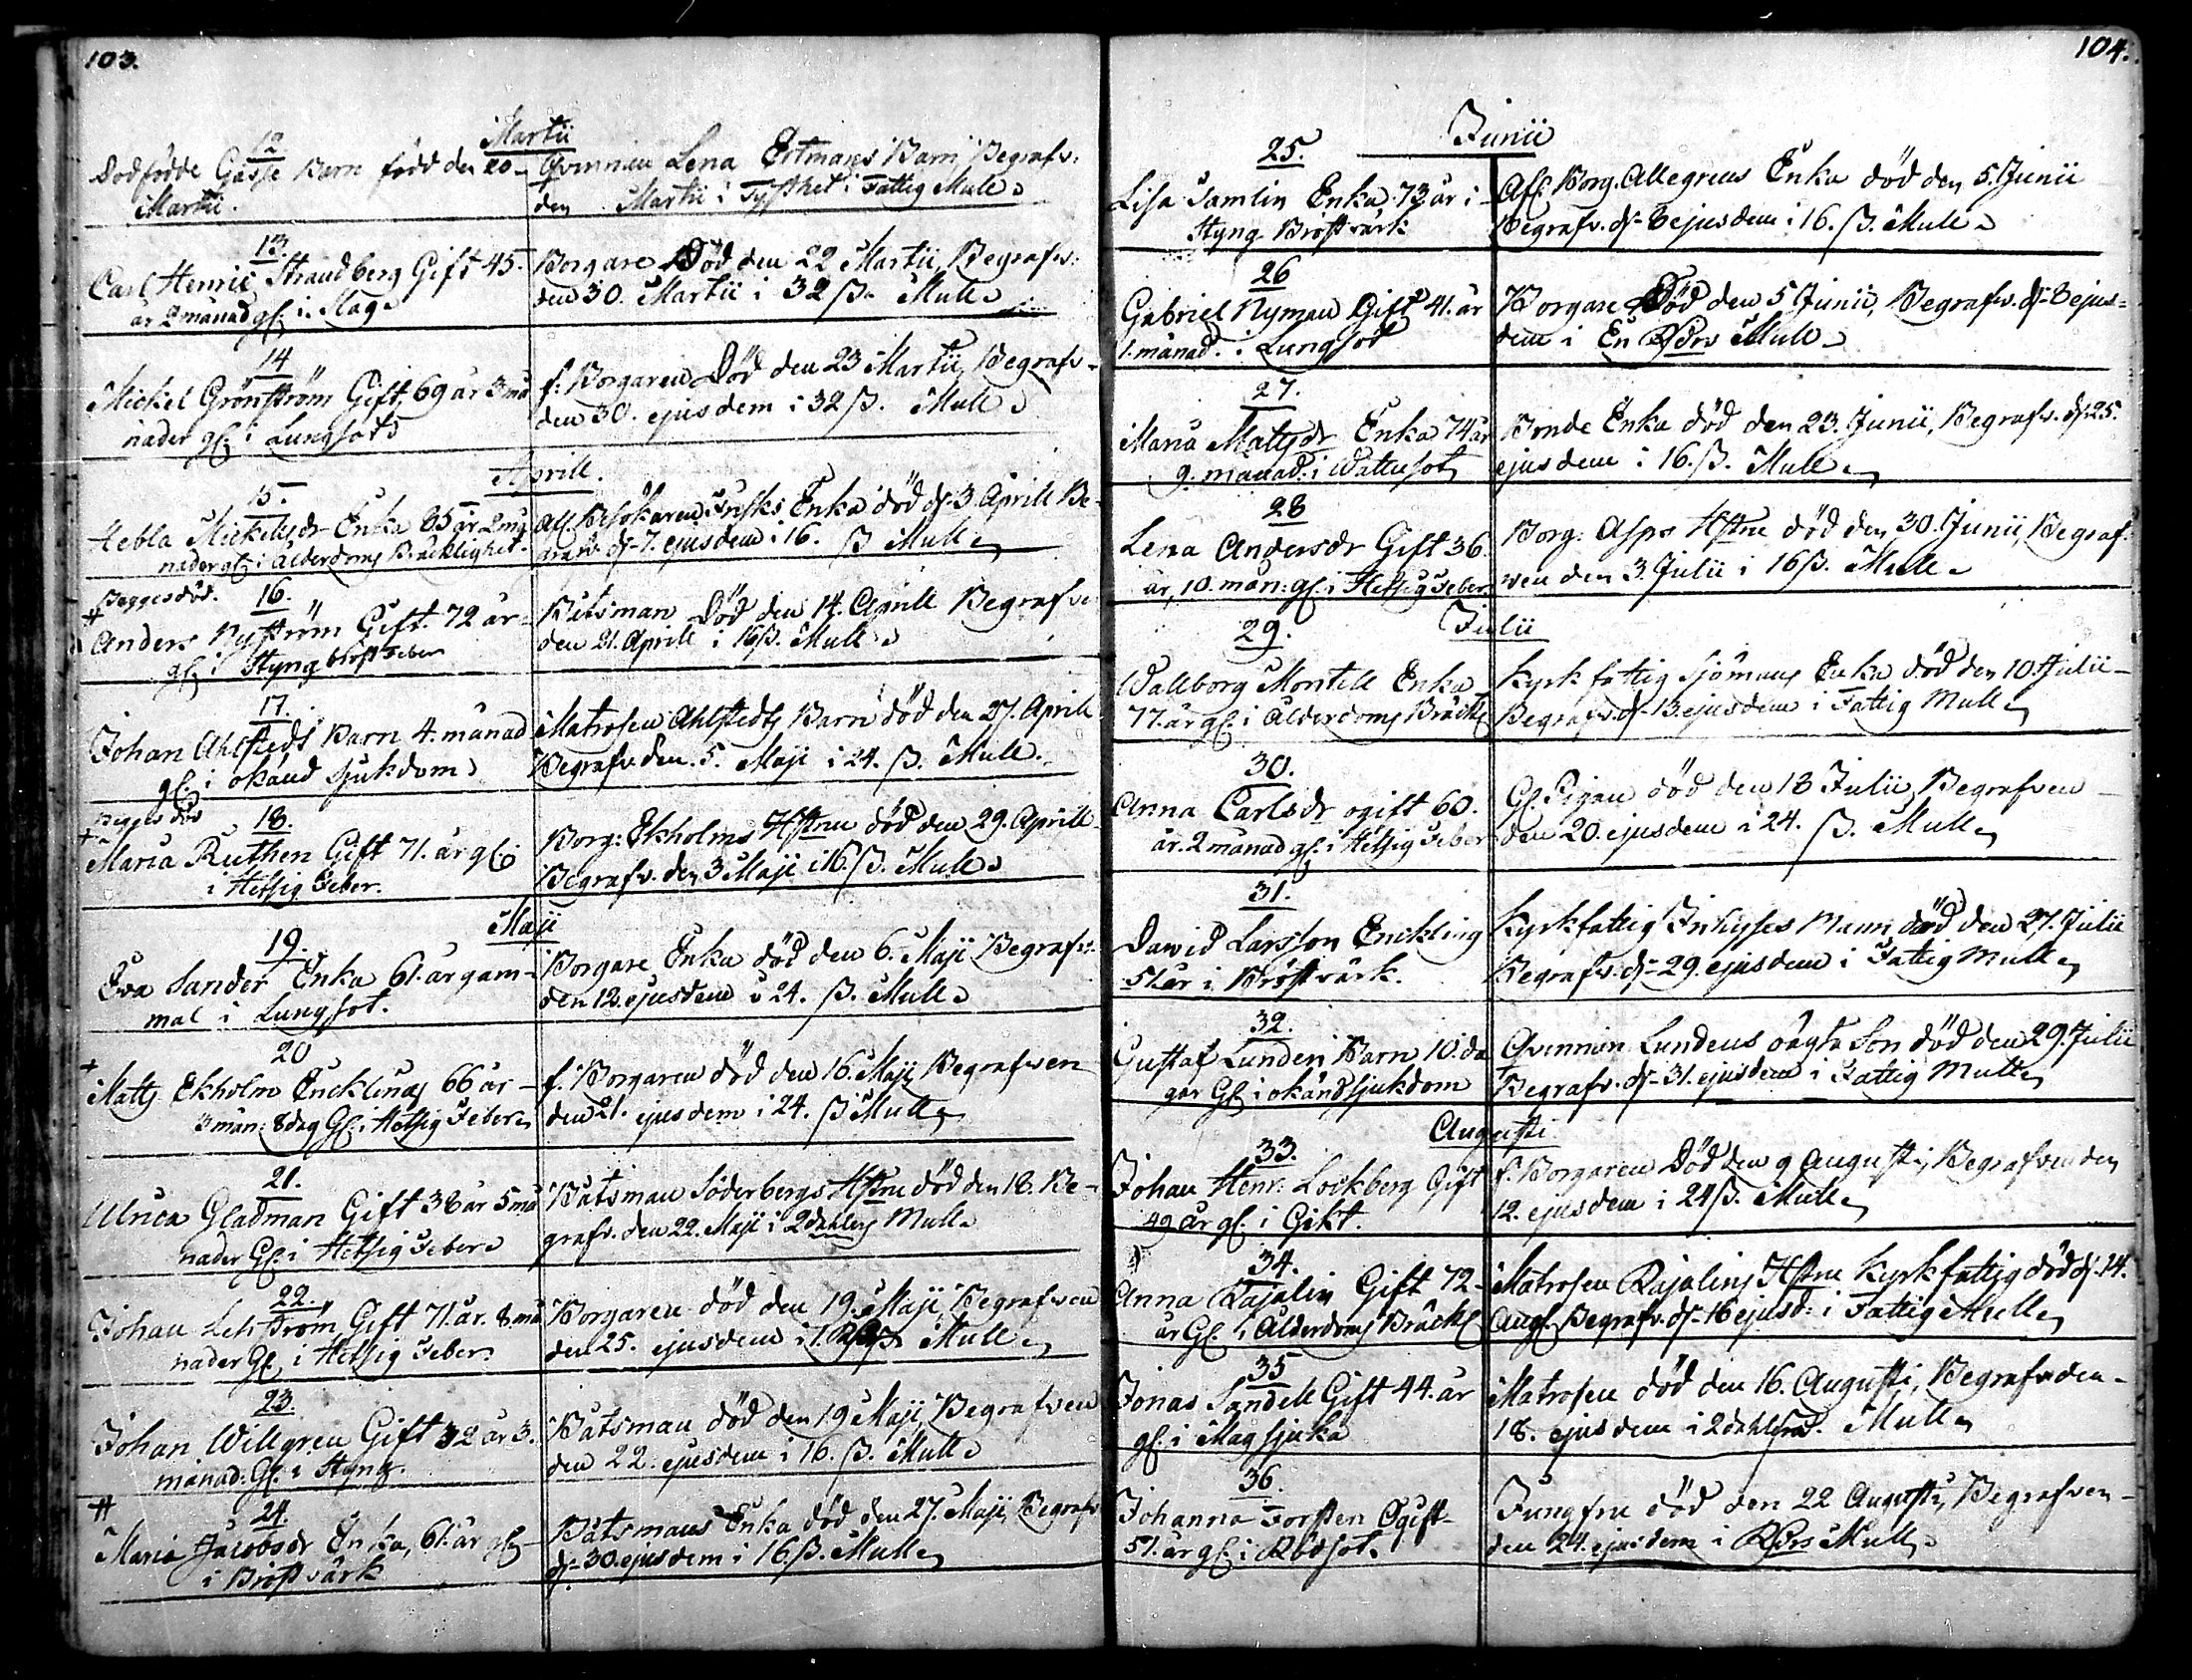 103.
Martii
12.
Dödfödde Gåsse Barn född den 20
Martii.
Qvinnien Lena Ertmans Barn, Begrafv:
den Martii i Tysthet i Fattig Mull
13.
Carl Henric Strandberg Gift 45.
år 2 månad gl: i Mag
Borgare Död den 22 Martii, Begrafv:
den 30. Martii i 32 ß. Mull
14
Mickel Grönström Gift, 69 år 3 må
nader gl: i Lungsot
f: Borgaren Död den 23 Martii, Begrafv-
den 30. ejusdem i 32 ß. Mull
Aprill.
15.
Hebla Mickelsdr Enka 85 år 2 må
nader gl: i Ålderdoms Bräcklighet.
Afl. Besökaren Enka död d. 3 Aprill Be-
grafv. d. 7. ejusdem i 16. ß Mull
16.
Anders Nyström Gift. 72 år
gl: i Styng bröst Feber
Båtsman Död den 14. Aprill Begrafv
den 21. Aprill i 16 ß. Mull
17.
Johan Ahlstedt Barn 4. månad
gl: i okänd sjukdom
Matrosen Ahlstedts Barn död den 27. Aprill
Begrafv. den 5. Maji i 24. ß. Mull.
18.
Maria Ruthen Gift 71. år gl:
i Hetsig Feber.
Borg: Ekholms Hstru död den 29. Aprill
Begrafv. den 3 Maji i 16. ß. Mull
Maji
19.
Eva Sander Enka 61. år gam-
mal i Lungsot.
Borgare Enka död den 6. Maji Begrafv:
den 12. ejusdem i 24. ß. Mull
20
Matts Ekholm Enckling 66 år
3 mån: 8 dag Gl: i Hetsig Feber
f. Borgaren död den 16. Maji Begrafven
den 21. ejusdem i 24. ß Mull
21.
Ulrica Gladman Gift 38 år 5 må
nader Gl: i Hetsig Feber
Båtsman Söderbergs Hstru död den 18. Be-
grafv. den 22. Maji i 2 dahlers Mull
22.
Johan Lehström Gift 71. år. 8 må
nader Gl: i Hetsig Feber.
Borgaren död den 19. Maji, Begrafven
den 25. ejusdem i 1. Mull
23.
Johan Willgren Gift 32 år 3.
månad: Gl: i Styng.
Båtsman död den 19 Maji, Begrafven
den 22. ejusdem i 16. ß. Mull
24.
Maria Jacobsdr Enka, 61. år gl:
i Bröstvärk
Båtsmans Enka död den 27. Maji, Begrafv
d. 30. ejusdem i 16 ß. Mull
104.
Junii
25.
Lisa Samlin Enka 73 år i
Styng Bröstvärk
Afl. Borg. Allegrens Enka död den 5. Junii
Begrafv. d. 8 ejusdem i 16. ß. Mull
26
Gabriel Nyman Gift 41. år
1. månad. i Lungsot
Borgare Död den 5 Junii, Begrafv. d. 8 ejus-
dem i En Rdrs Mull
27.
Maria Mattsdr Enka 74 år
9. månad. i Wattusot
Bonde Enka död den 23. Junii, Begrafv. d. 25.
ejusdem i 16. ß. Mull
28
Lena Andersdr Gift 36
år, 10. mån: gl: i Hetsig Feber
Borg: Asps Hstru död den 30. Junii, Begraf-
wen den 3. Julii i 16 ß. Mull
Julii
29.
Wallborg Montell Enka
77. år gl: i Ålderdoms Bräckl
Kyrkfattig Sjömans Enka död den 10. Julii
Begrafv. d. 13. ejusdem i Fattig Mull
30.
Anna Carlsdr ogift 60.
år. 2 månad gl: i Hetsig Feber
Gl. Pigan död den 18 Julii, Begrafven
den 20. ejusdem i 24. ß. Mull
31.
David Larsson Enckling
51. år i Bröstvärk.
Kyrkfattig Inhyses Mann död den 27. Julii
Begrafv. d. 29. ejusdem i Fattig Mull
32.
Gustaf Lunden Barn 10. da
gar Gl: i okänd sjukdom
Qvinnan Lundens oägta Son död den 29. Julii
Begrafv. d. 31. ejusdem i Fattig Mull
Augusti
33.
Johan Henr. Lockberg Gift
49 år gl: i Gikt.
f. Borgaren Död den 9 Augusti, Begrafven den
12. ejusdem i 24 ß. Mull
34.
Anna Rajalin Gift 72
år Gl: i Ålderdoms Bräckl
Matrosen Rajalins Hstru Kyrkfattig död d. 14.
Aug. Begrafv. d. 16 ejusd: i Fattig Mull
35
Jonas Sandell Gift 44. år
gl: i Magsjuka
Matrosen död den 16. Augusti, Begrafv. den
18. ejusdem i 2 dahlers. Mull
36.
Johanna Forsten Ogift
51. år gl: i Rödsot.
Jungfru död den 22 Augusti, Begrafven
den 24. ejusdem i Rdrs Mull